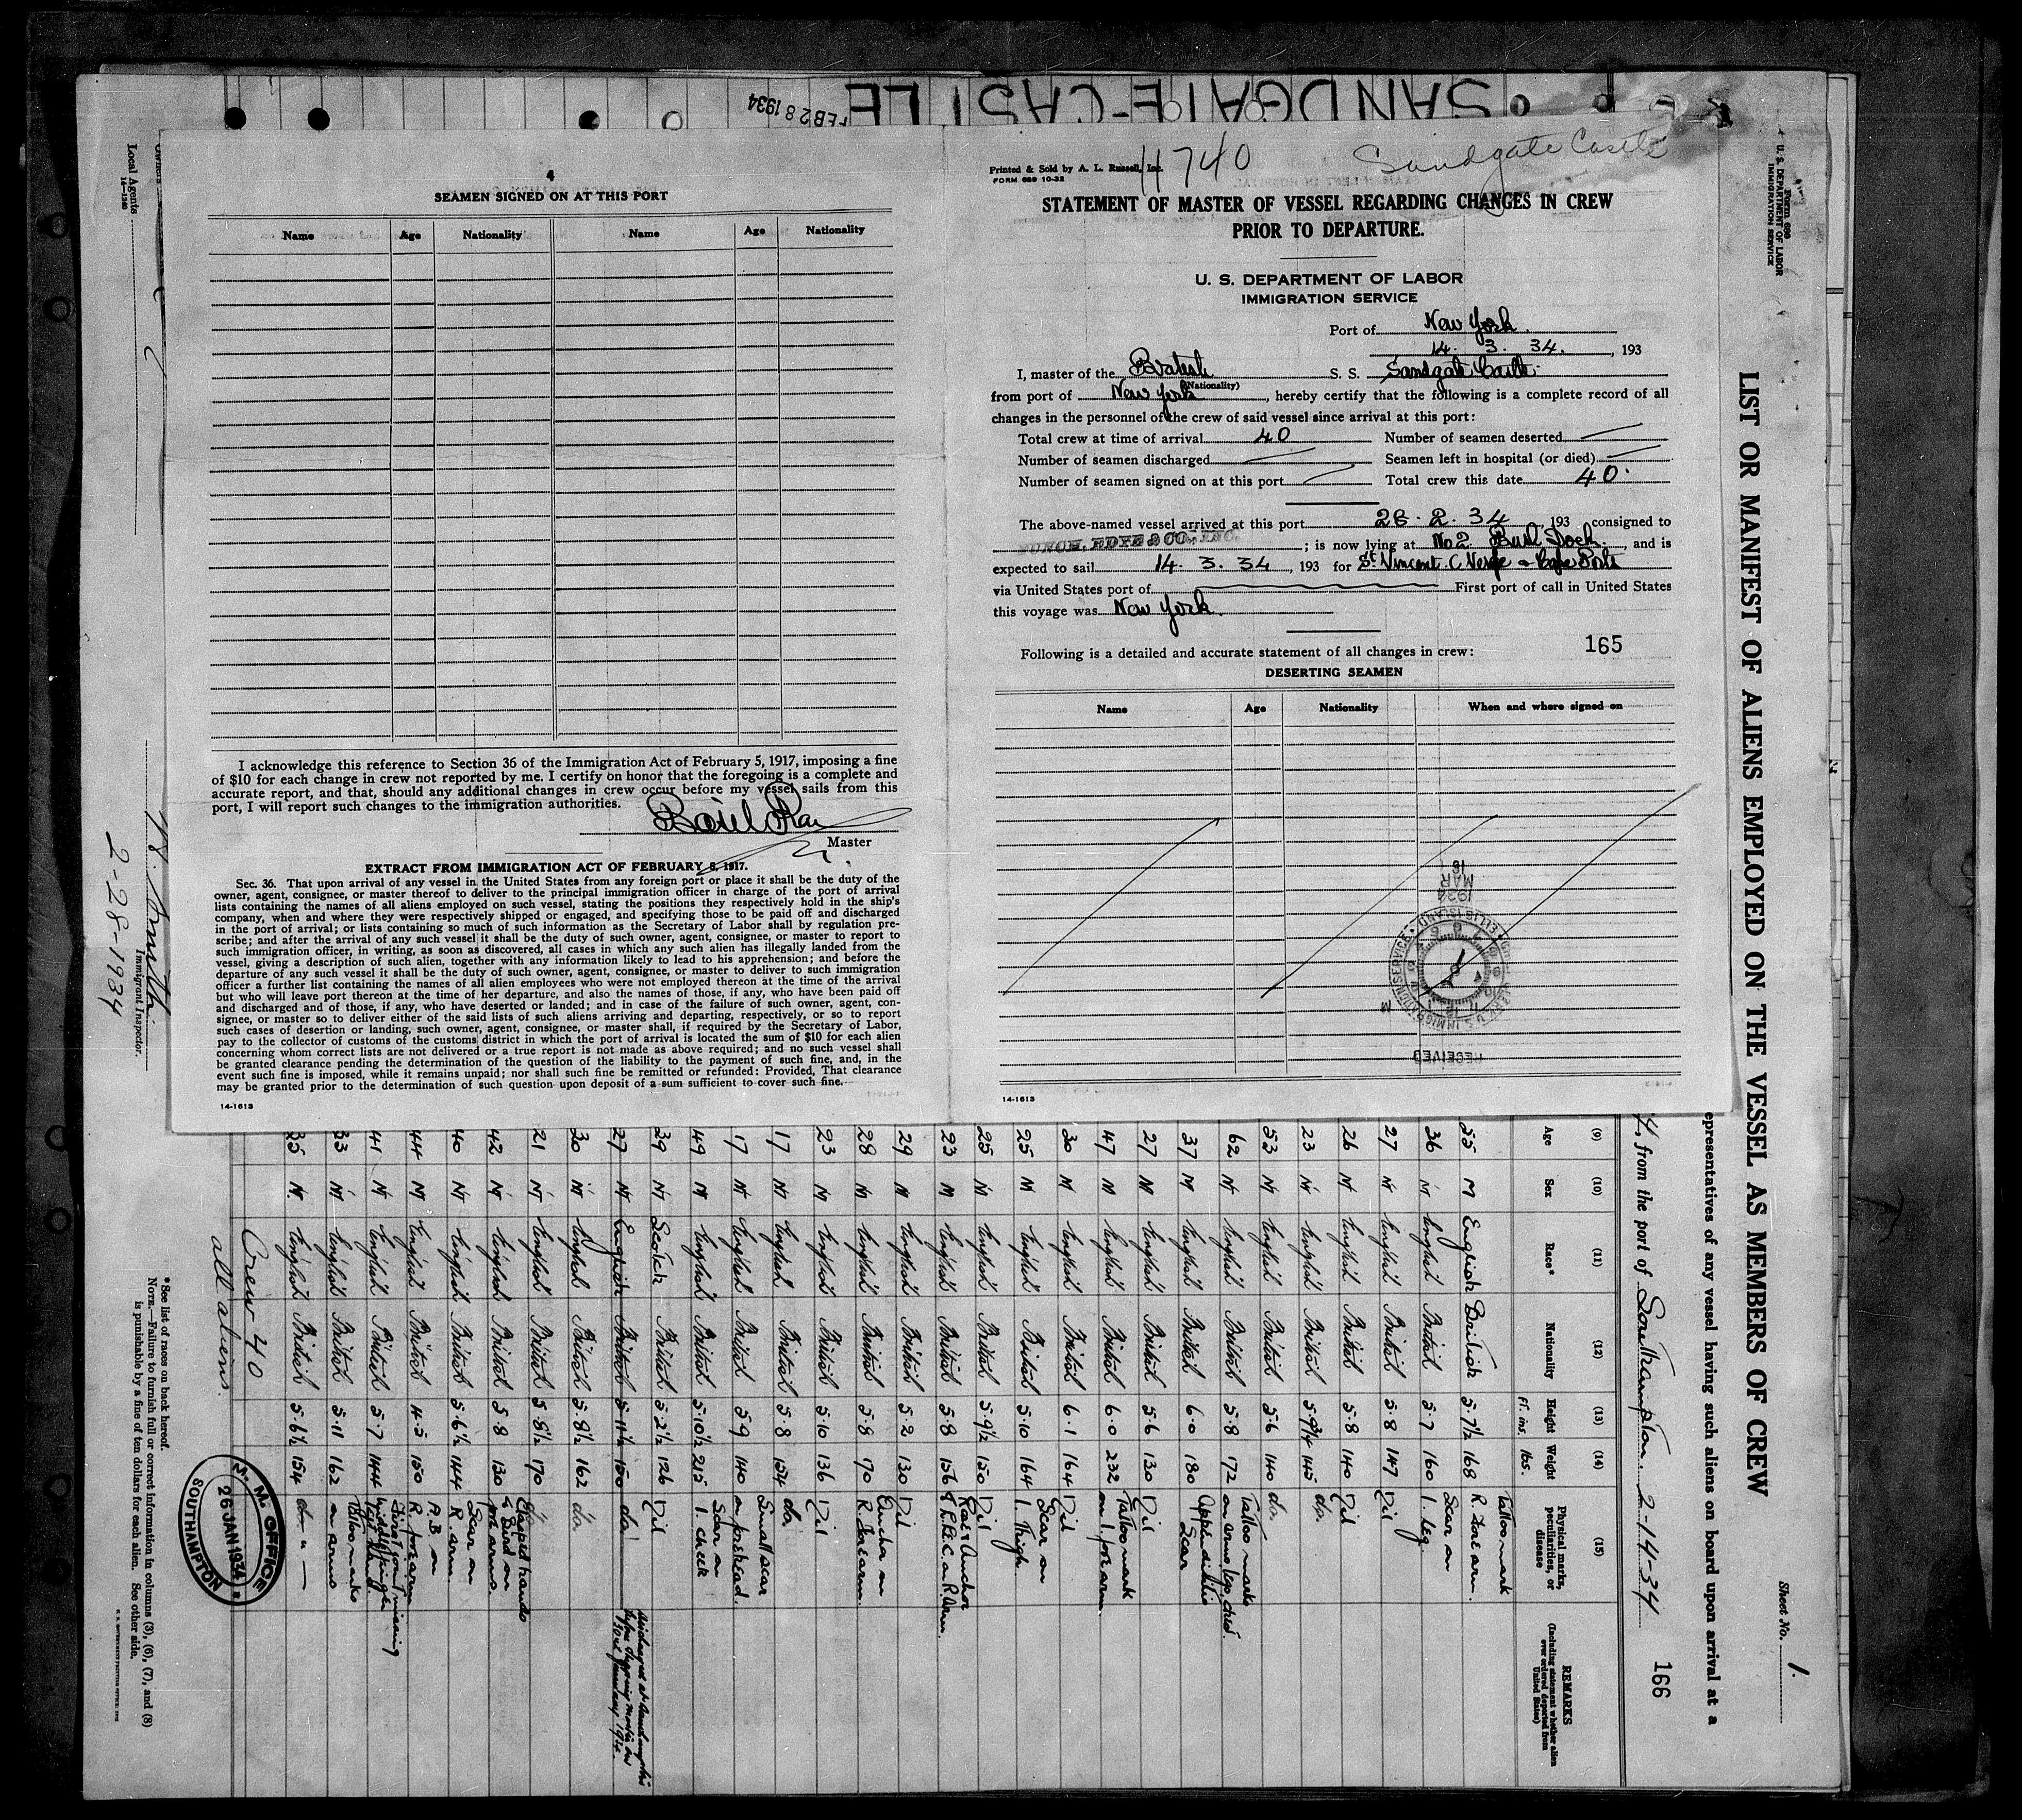 SANDGATE-CASTLE
FEB 28 1934
4
SEAMEN SIGNED ON AT THIS PORT
Name Age Nationality Name Age Nationality
I acknowledge this reference to Section 36 of the Immigration Act of February 5, 1917, imposing a fine
of $10 for each change in crew not reported by me. I certify on honor that the foregoing is a complete and
accurate report, and that, should any additional changes in crew occur before my vessel sails from this
port, I will report such changes to the immigration authorities.
Master
EXTRACT FROM IMMIGRATION ACT OF FEBRUARY 5, 1917.
Sec. 36. That upon arrival of any vessel in the United States from any foreign port or place it shall be the duty of the
owner, agent, consignee, or master thereof to deliver to the principal immigration officer in charge of the port of arrival
lists containing the names of all aliens employed on such vessel, stating the positions they respectively hold in the ship's
company, when and where they were respectively shipped or engaged, and specifying those to be paid off and discharged
in the port of arrival; or lists containing so much of such information as the Secretary of Labor shall by regulation pre-
scribe; and after the arrival of any such vessel it shall be the duty of such owner, agent, consignee, or master to report to
such immigration officer, in writing, as soon as discovered, all cases in which any such alien has illegally landed from the
vessel, giving a description of such alien, together with any information likely to lead to his apprehension; and before the
departure of any such vessel it shall be the duty of such owner, agent, consignee, or master to deliver to such immigration
officer a further list containing the names of all alien employees who were not employed thereon at the time of the arrival
but who will leave port thereon at the time of her departure, and also the names of those, if any, who have been paid off
and discharged and of those, if any, who have deserted or landed; and in case of the failure of such owner, agent, con-
signee, or master so to deliver either of the said lists of such aliens arriving and departing, respectively, or so to report
such cases of desertion or landing, such owner, agent, consignee, or master shall, if required by the Secretary of Labor,
pay to the collector of customs of the customs district in which the port of arrival is located the sum of $10 for each alien
concerning whom correct lists are not delivered or a true report is not made as above required; and no such vessel shall
be granted clearance pending the determination of the question of the liability to the payment of such fine, and, in the
event such fine is imposed, while it remains unpaid; nor shall such fine be remitted or refunded: Provided, That clearance
may be granted prior to the determination of such question upon deposit of a sum sufficient to cover such fine.
14-1613
Printed & Sold by A. L. Russell, Inc.
FORM 689 10-32
11740 Sandgate Castle
STATEMENT OF MASTER OF VESSEL REGARDING CHANGES IN CREW
PRIOR TO DEPARTURE.
U. S. DEPARTMENT OF LABOR
IMMIGRATION SERVICE
Port of New York
14. 3. 34. , 193
I, master of the British S. S. Sandgate Castle
(Nationality)
from port of New York , hereby certify that the following is a complete record of all
changes in the personnel of the crew of said vessel since arrival at this port:
Total crew at time of arrival 40 Number of seamen deserted
Number of seamen discharged Seamen left in hospital (or died)
Number of seamen signed on at this port Total crew this date 40.
The above-named vessel arrived at this port 28. 2. 34 , 193 consigned to
FUNCH, EDYE & CO., INC. ; is now lying at No 2 Bush Dock , and is
expected to sail 14. 3. 34 , 193 for St Vincent. C Verde & Cape Ports
via United States port of First port of call in United States
this voyage was New York.
165
Following is a detailed and accurate statement of all changes in crew:
DESERTING SEAMEN
Name Age Nationality When and where signed on
1934
MAR
16
RECEIVED
14-1613
Form 680
U. S. DEPARTMENT OF LABOR
IMMIGRATION SERVICE
Sheet No. 1.
LIST OR MANIFEST OF ALIENS EMPLOYED ON THE VESSEL AS MEMBERS OF CREW
epresentatives of any vessel having such aliens on board upon arrival at a
4, from the port of Southampton 2-14-34
166
(9) (10) (11) (12) (13) (14) (15)
Age Sex Race* Nationality Height Ft. ins. Weight lbs. Physical marks, peculiarities, or disease REMARKS (Including statement whether alien ever ordered deported from United States)
55 M English British 5.7½ 168 Tattoo mark R. fore arm.
36 M English British 5.7 160 Scar on l. leg.
27 M English British 5.8 147 Nil
26 M English British 5.8 140 Nil
23 M English British 5.9¾ 145 do.
53 M English British 5.6 140 do.
62 M English British 5.8 172 Tattoo marks on arms, legs, chest.
37 M English British 6.0 180 Appendicitis Scar
27 M English British 5.6 130 Nil
47 M English British 6.0 232 Tattoo mark on l. forearm.
30 M English British 6.1 164 Nil
25 M English British 5.10 164 Scar on l. Thigh.
25 M English British 5.9½ 150 Nil
23 M English British 5.8 156
29 M English British 5.2 130 Nil
28 M English British 5.8 170 Anchor on R. forearm.
23 M English British 5.10 136 Nil
17 M English British 5.8 154 do.
17 M English British 5.9 140 Small scar on forehead.
49 M English British 5.10½ 215 Scar on l. cheek
39 M Scotch British 5.2½ 126 Nil
27 M English British 5.11½ 150 do.
30 M English British 5.8½ 162 do.
21 M English British 5.8½ 170 do.
42 M English British 5.8 130 Clasped hands & Bird on forearms.
40 M English British 5.6½ 144 Scar on R. arm.
44 M English British 4.5 150 A.B. on R. forearm
41 M English British 5.7 144 First joint missing middle finger left hand.
33 M English British 5.11 162 Tattoo marks on arms
35 M. English British 5.6½ 154 do - " -
Crew 40
all aliens.
M. M. OFFICE
26 JAN 1934
SOUTHAMPTON
*See list of races on back hereof.
NOTE.—Failure to furnish full or correct information in columns (3), (6), (7), and (8)
is punishable by a fine of ten dollars for each alien. See other side.
Owners
Local Agents
14-1240
Immigrant Inspector.
2-28-1934